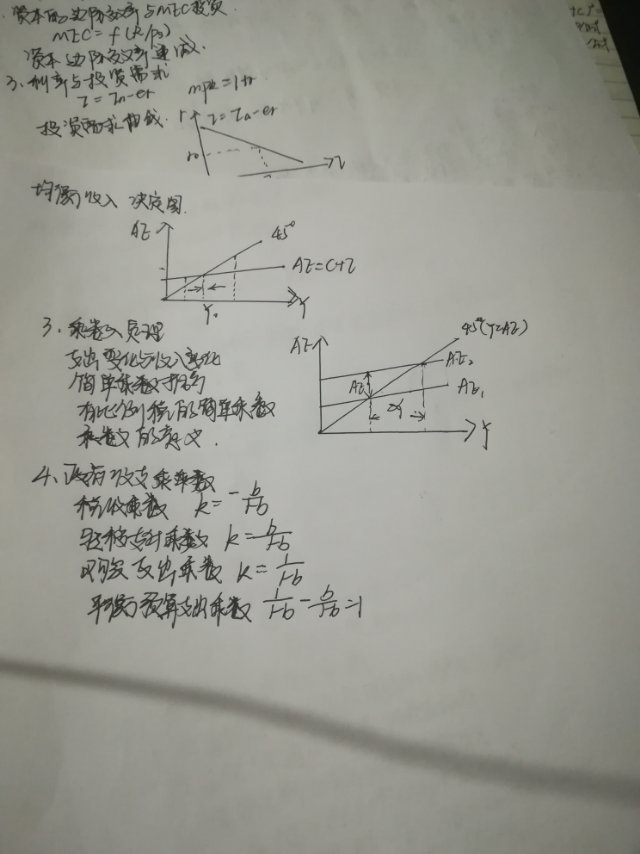 资本的边际效率与MEC投资.
MEC = f(R/P₀)
资本边际效率递减.
3、利率与投资需求
I = I₀-er mpk=1+r
投资需求曲线. r I = I₀-er
r₀
I
均衡收入决定图.
AE 45°
AE=C+I
Y₀ Y
3. 乘数原理
支出变化与收入变化
简单乘数推行
有比例税的简单乘数
乘数的意义.
AE 45°(Y=AE)
AE₂
AE AE₁
ΔY Y
4、政府收支乘数
税收乘数 k = -b/1-b
转移支付乘数 k = b/1-b
购买支出乘数 k = 1/1-b
平衡预算支出乘数 1/1-b - b/1-b =1